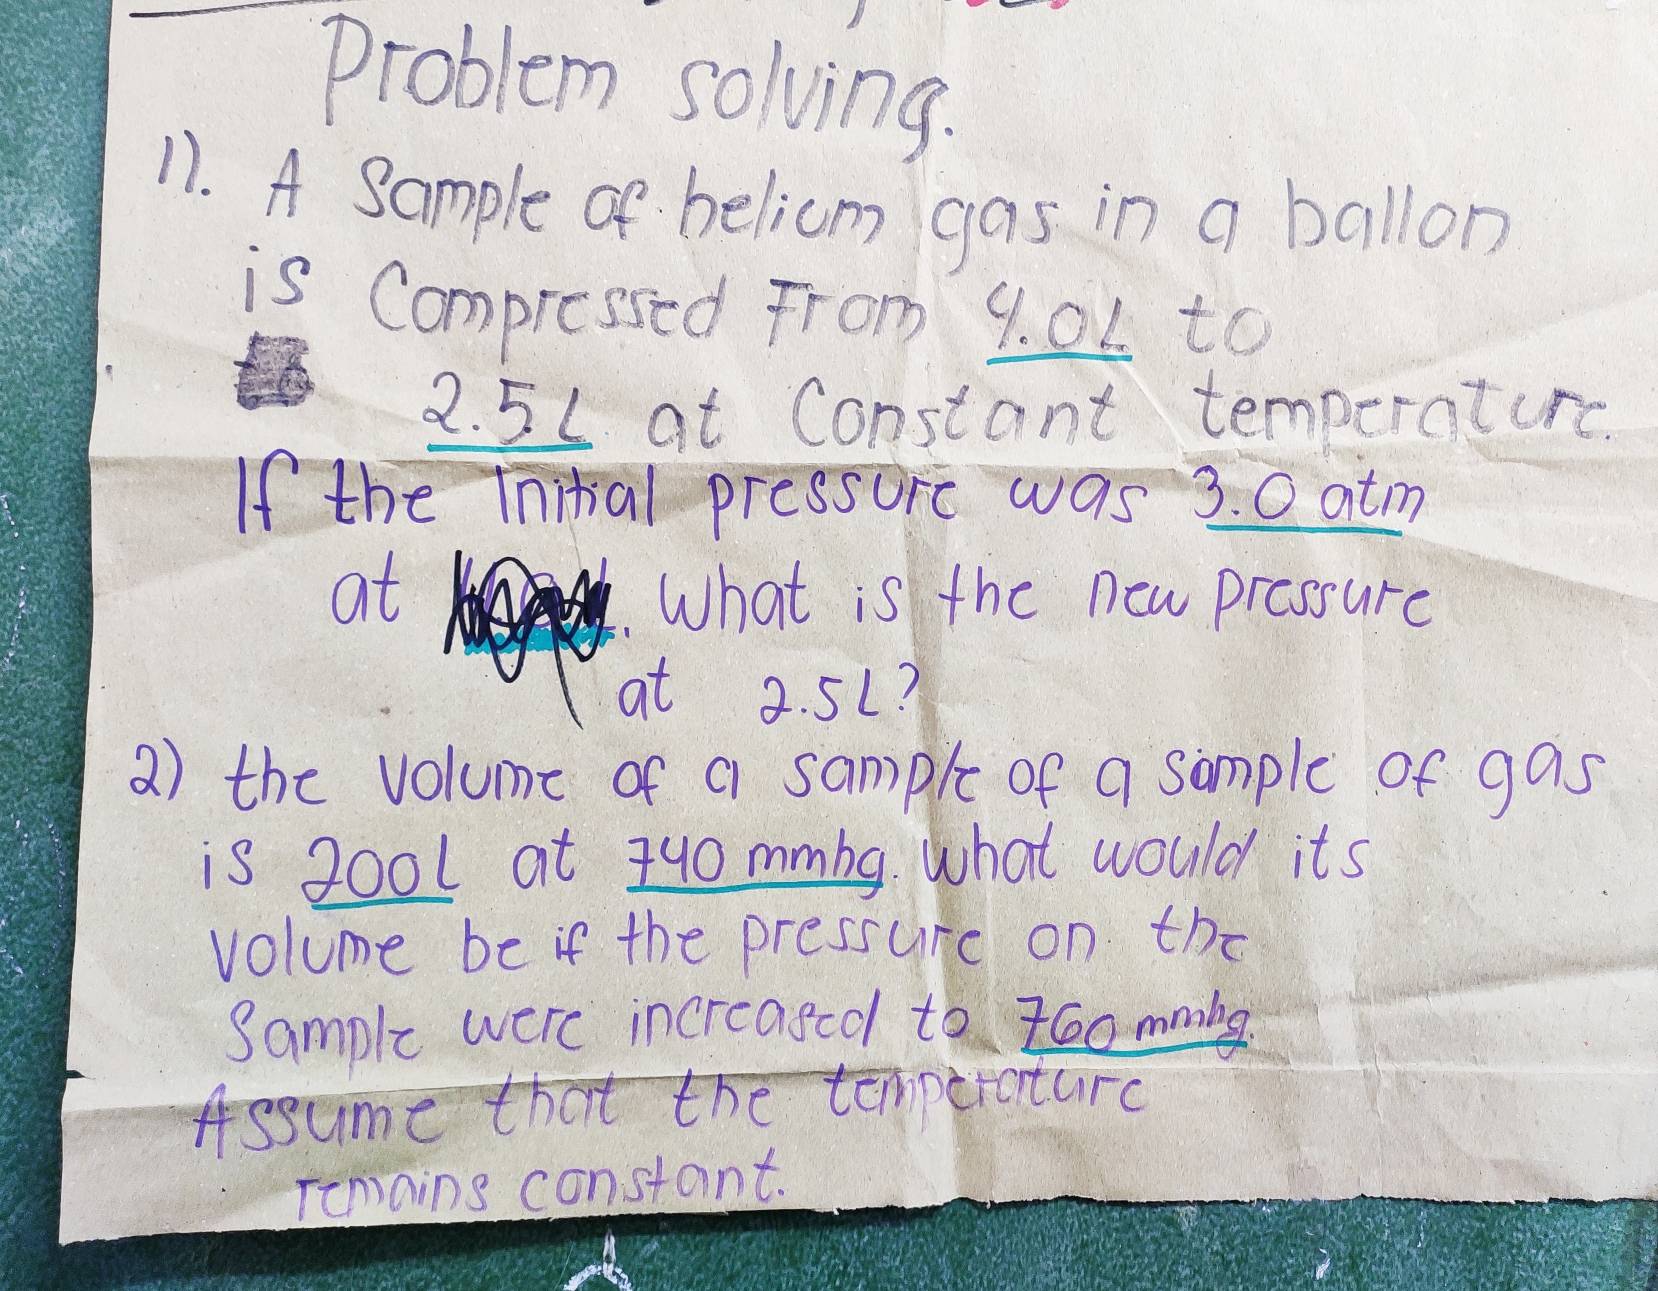 Problem solving.
1). A Sample of helium gas in a ballon
is Compressed From 4.0L to
2.5L at Constant temperature.
If the Initial pressure was 3.0 atm
at . What is the new pressure
at 2.5L?
2) the volume of a sample of a sample of gas
is 200L at 740 mmhg. What would its
volume be if the pressure on the
Sample were increased to 760 mmhg.
Assume that the temperature
remains constant.